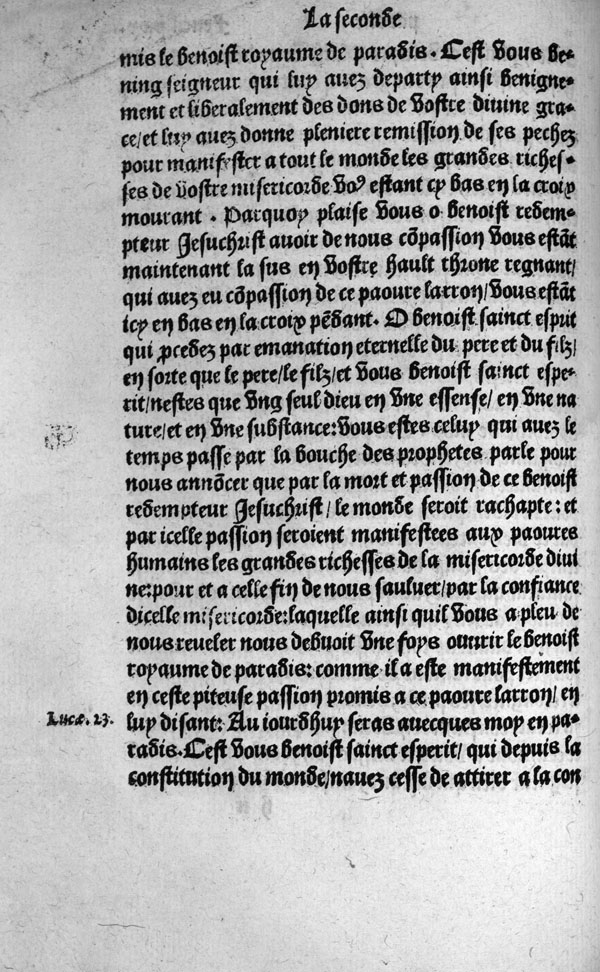 La seconde
mis le benoist royaume de paradis. Cest vous be-
ning seigneur qui luy auez departy ainsi benigne-
ment et liberalement des dons de vostre diuine gra-
ce/et luy auez donne pleniere remission de ses pechez
pour manifester a tout le monde les grandes riches-
ses de vostre misericorde voꝰ estant cy bas en la croix
mourant. Parquoy plaise vous o benoist redem-
pteur Jesuchrist auoir de nous cōpassion vous estāt
maintenant la sus en vostre hault throne regnant/
qui auez eu cōpassion de ce paoure larron/vous estāt
icy en bas en la croix pēdant. O benoist sainct esprit
qui ꝓcedez par emanation eternelle du pere et du filz/
en sorte que le pere/le filz/et vous benoist sainct espe-
rit/nestes que vng seul dieu en vne essense/en vne na
ture/et en vne substance:vous estes celuy qui auez le
temps passe par la bouche des prophetes parle pour
nous annōcer que par la mort et passion de ce benoist
redempteur Jesuchrist/le monde seroit rachapte:et
par icelle passion seroient manifestees aux paoures
humains les grandes richesses de la misericorde diui
ne:pour et a celle fin de nous sauluer/par la confiance
dicelle misericorde:laquelle ainsi quil vous a pleu de
nous reueler nous debuoit vne foys ouurir le benoist
royaume de paradis:comme il a este manifestement
en ceste piteuse passion promis a ce paoure larron/en
Lucæ.23. luy disant:Au iourdhuy seras auecques moy en pa-
radis.Cest vous benoist sainct esperit/qui depuis la
constitution du monde/nauez cesse de attirer a la con